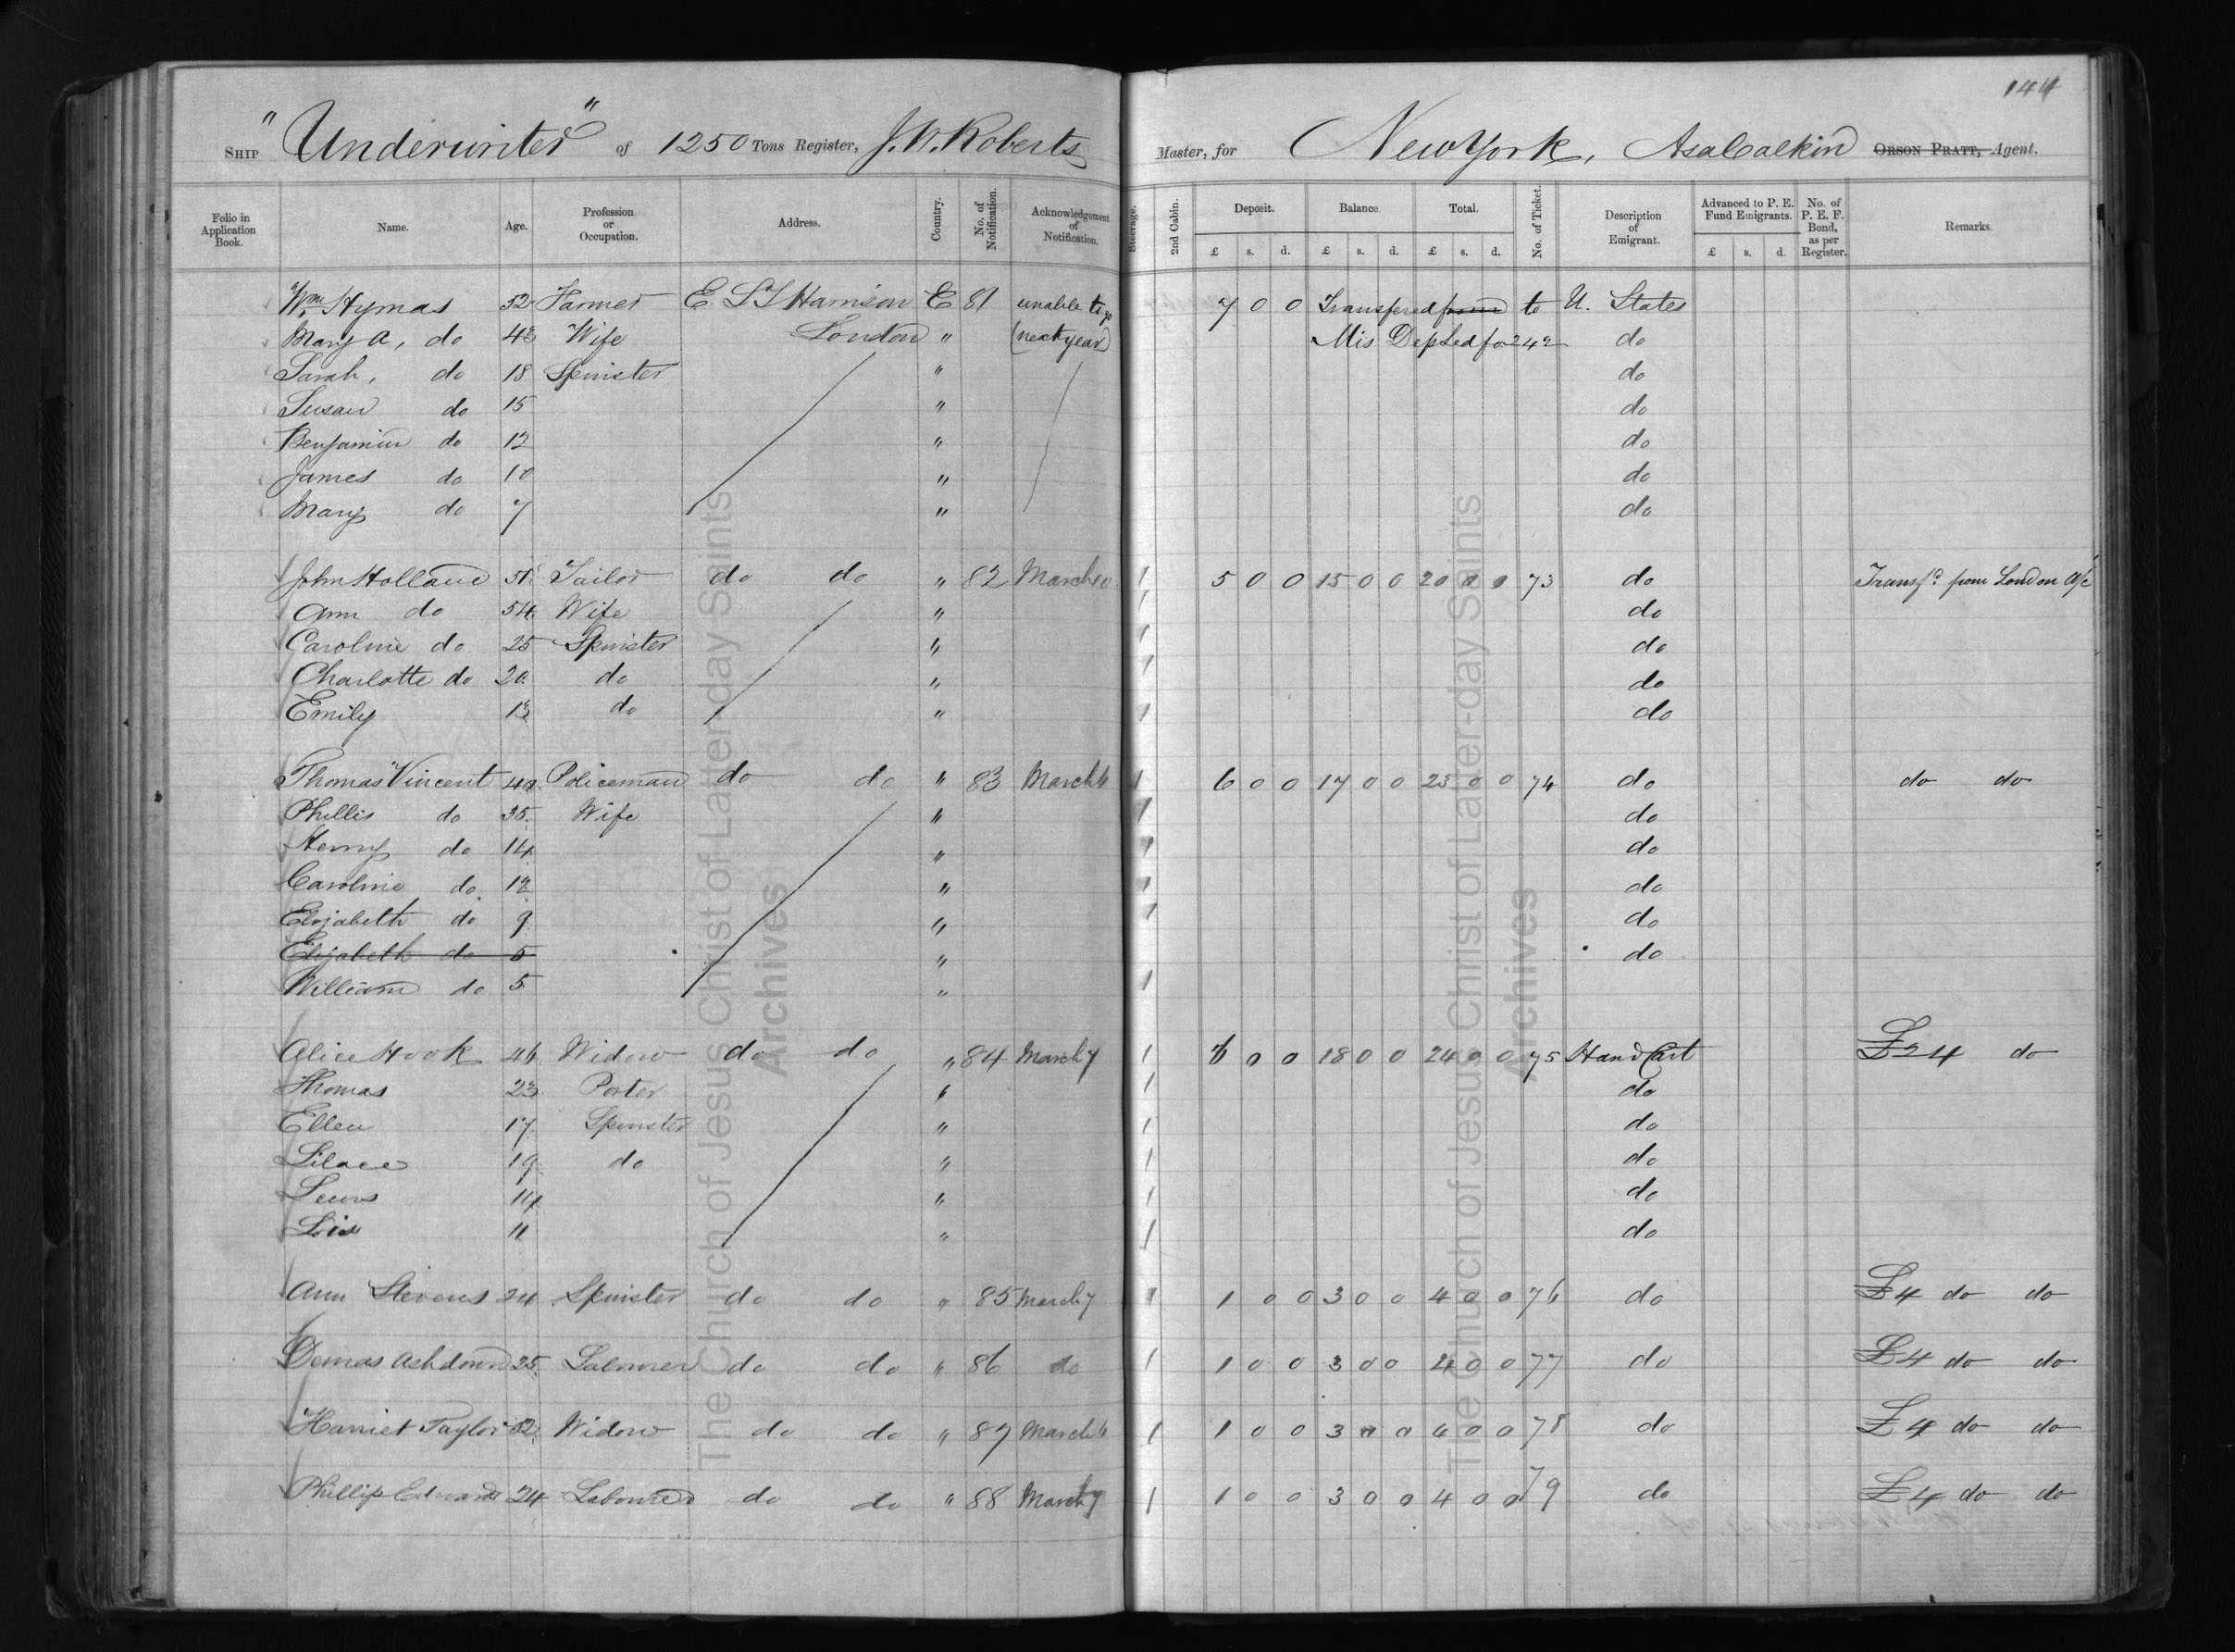 144
SHIP "Underwriter" of 1250 Tons Register, J. W. Roberts Master, for New York, Asa Calkin ORSON PRATT, Agent.
Folio in Application Book. Name. Age. Profession or Occupation. Address. Country. No. of Notification. Acknowledgement of Notification. Steerage. 2nd Cabin. Deposit. £ s. d. Balance £ s. d. Total. £ s. d. No. of Ticket. Description of Emigrant. Advanced to P. E. Fund Emigrants. £ s. d. No. of P. E. F. Bond, as per Register. Remarks.
Wm Hymas 52 Farmer E L T Harrison E 81 unable to go 7 0 0 Transfered from to U. States
Mary A, do 43 Wife London " (next year) Mis Dep Led fo 242 do
Sarah, do 18 Spinster " do
Susan do 15 " do
Benjamin do 12 " do
James do 10 " do
Mary do 7 " do
John Holland 51 Tailor do do " 82 March 10 1 5 0 0 15 0 0 20 0 0 73 do Transfd from London a/c
Ann do 54 Wife " 1 do
Caroline do 25 Spinster " 1 do
Charlotte do 20 do " 1 do
Emily 13 do " 1 do
Thomas Vincent 42 Policeman do do " 83 March 6 1 6 0 0 17 0 0 23 0 0 74 do do do
Phillis do 35 Wife " 1 do
Henry do 14 " 1 do
Caroline do 12 " 1 do
Elizabeth do 9 " 1 do
Elizabeth do 5 " do
William do 5 " 1
Alice Hook 46 Widow do do " 84 March 7 1 6 0 0 18 0 0 24 0 0 75 Hand Cart £24 do
Thomas 23 Porter " 1 do
Ellen 17 Spinster " 1 do
Silace 19 do " 1 do
Lewis 14 " 1 do
Lois 11 " 1 do
Ann Stevens 24 Spinster do do " 85 March 7 1 1 0 0 3 0 0 4 0 0 76 do £4 do do
Demas Ashdown 25 Labourer do do " 86 do 1 1 0 0 3 0 0 4 0 0 77 do £4 do do
Harriet Taylor 52 Widow do do " 87 March 6 1 1 0 0 3 0 0 4 0 0 78 do £4 do do
Phillip Edwards 24 Labourer do do " 88 March 7 1 1 0 0 3 0 0 4 0 0 79 do £4 do do
The Church of Jesus Christ of Latter-day Saints
Archives
The Church of Jesus Christ of Latter-day Saints
Archives